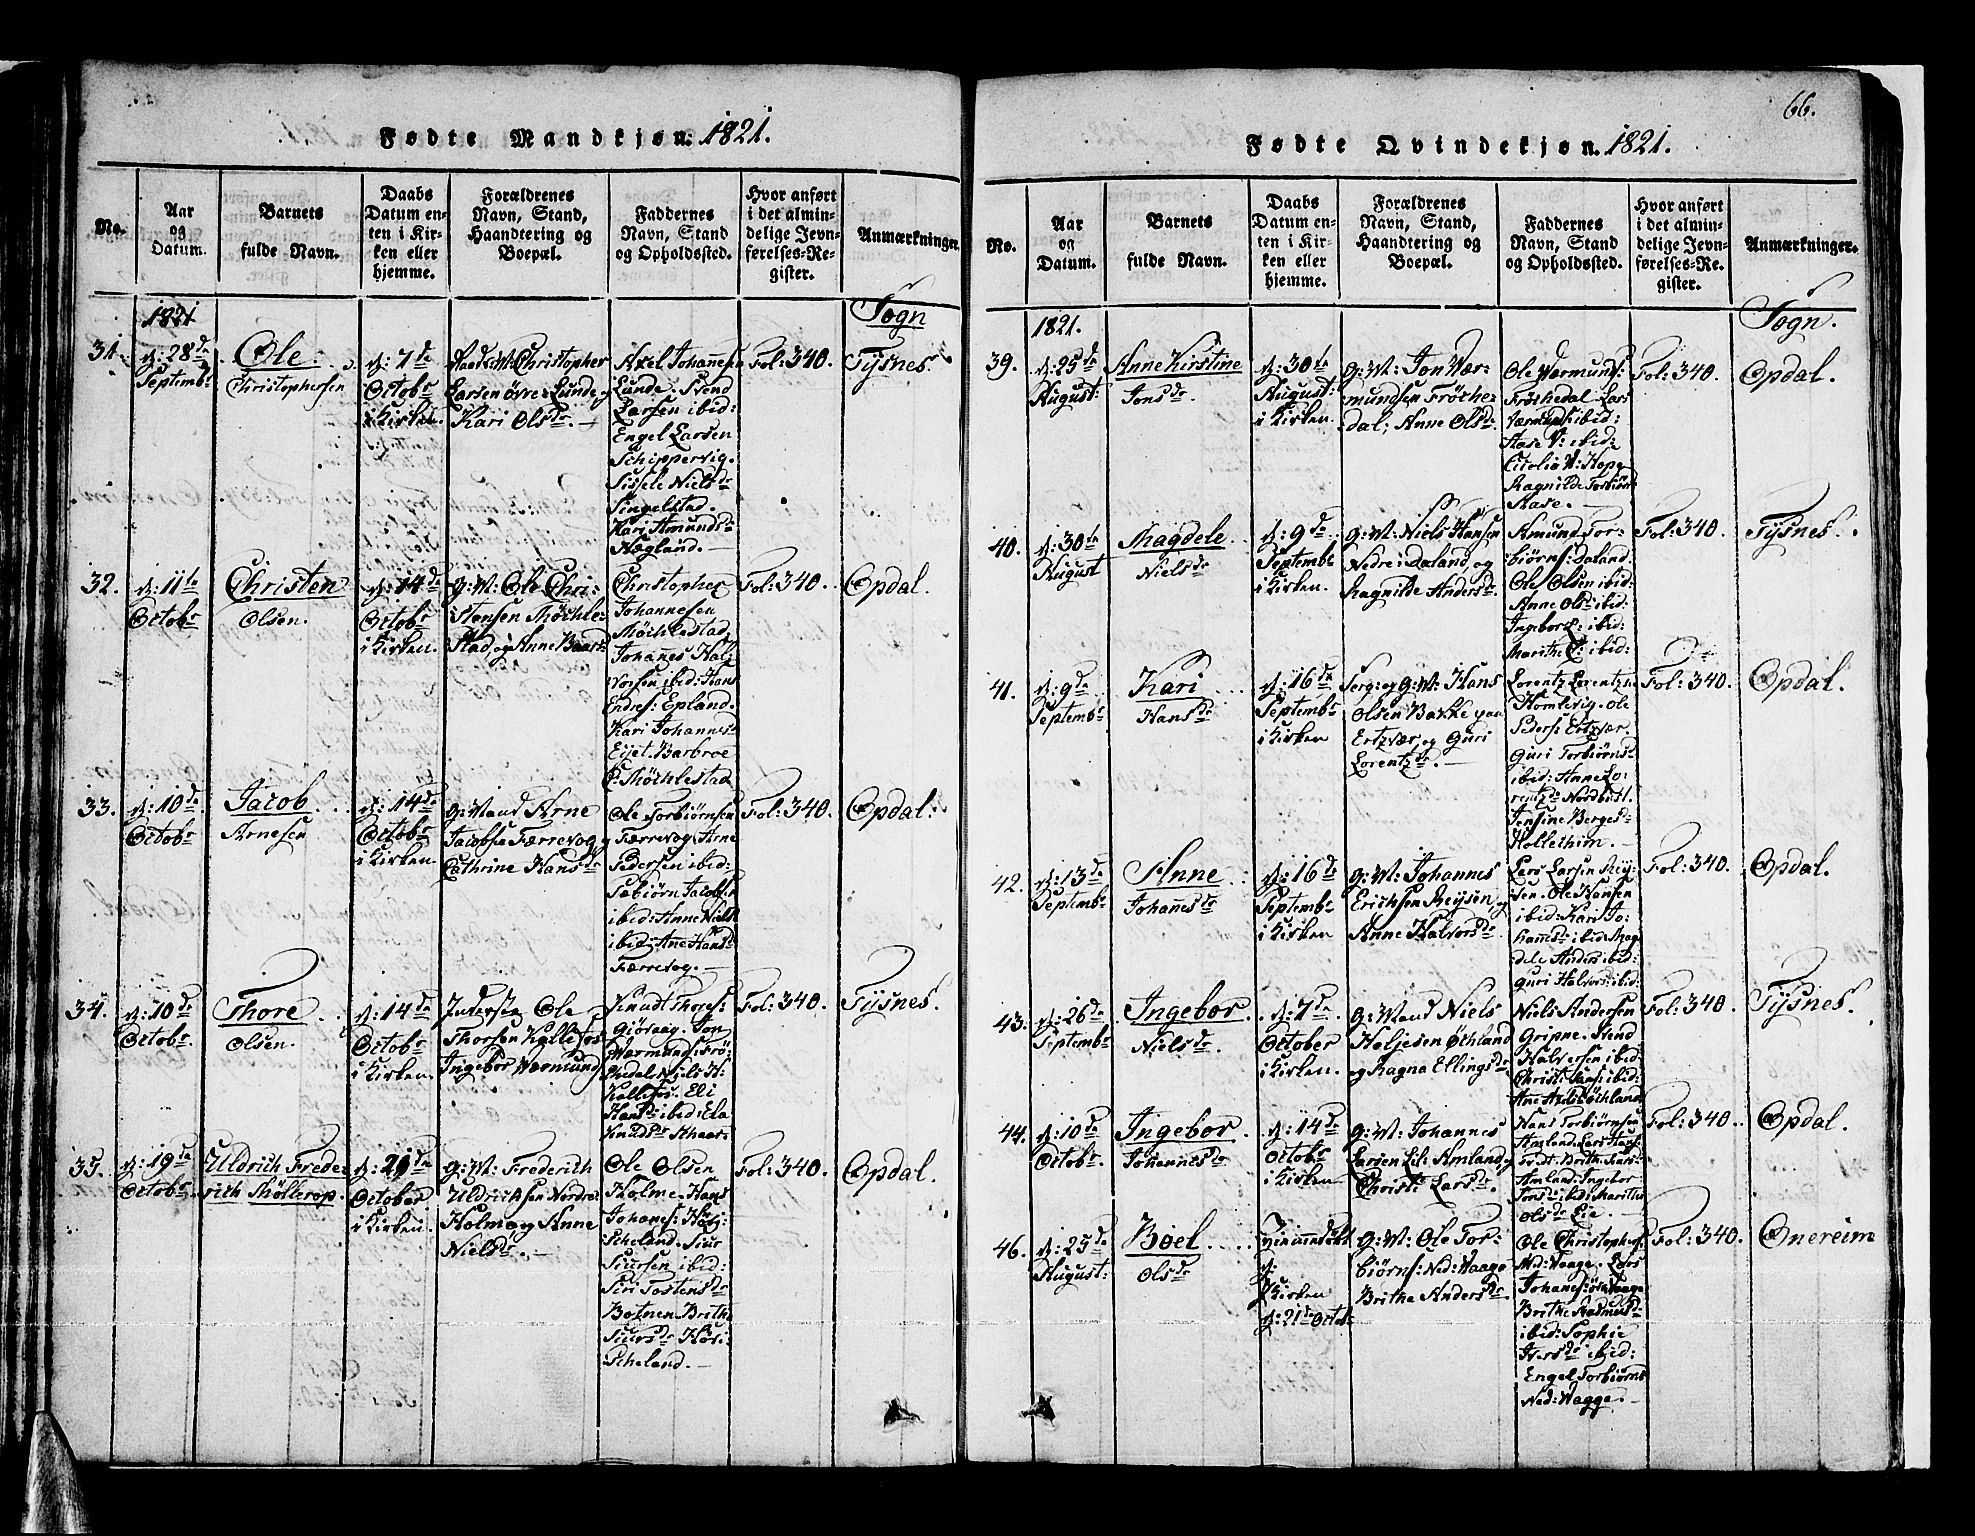 Fødte Mandkjøn. 1821.
No.
Aar
og
Datum.
Barnets
fulde Navn.
Daabs
Datum en-
ten i Kir-
ken eller
hjemme.
Forældrenes
Navn, Stand,
Haandtering og
Boepæl.
Faddernes
Navn, Stand
og Opholdssted.
Hvor anført
i det almin-
delige Jevn-
førelses-Re-
gister.
Anmærkninger.
1821
Sogn
31.
d: 28de
Septembr
Ole
Christophersen
d: 7de
Octobr
i Kirken.
Christopher
Larsen øvre Lunde og
Kari Olsdr. –
Axel Johannesn
Lunde. Svend
Larsen ibid:
Engel Larsen
Schippervig.
Sissele Nielsdr
Singelstad.
Kari Amundsdr
Hægland. –
Fol: 340.
Tysnes.
32.
d: 11te
Octobr
Christen
Olsen.
d: 14de
Octobr
i Kirken.
g: M: Ole Chri-
stensen Møchle-
stad og Anne Baars-
Christopher
Johannesen
Møchlestad
Johañes Hal-
vorsen ibid: Hans
Endres: Epland.
Kari Johannes
Eijet. Barbroe
P: Møchlestad
Fol: 340
Opdal.
33.
d: 10de
Octobr
Jacob
Arnesen
d: 14de
Octobr
i Kirken.
g: Mand Arne
Jacobsen Færrevog og
Cathrine Hansdr
Ole Torbiørnsen
Færrevog. Arne
Pedersen ibid:
Tabiørn Jacobsen
ibid: Anne Niels
ibid: Ane Hansdr
Færrevog. –
Fol: 340.
Opdal:
34.
d: 10de
Octobr
Thore
Olsen.
d: 14de
Octobr
i Kirken.
Inderste Ole
Thorsen Kallefos
Ingebor Værmund
Knudt Thores:
Giøsaag. Jon
Wærmunds: Frø-
chedal. Niels H:
Kallefos. Eli
Hansdr ibid: Ela
Knudsdr Schaar:
Fol: 340.
Tysnes.
35.
d: 19de
Octobr
Uldrich Frede-
rich Møllerop.
d: 21de
October
i Kirken.
g: M: Frederich
Uldrichsen Nordre
Holma og Anne
Nielsdr. –
Ole Olsen
Holme. Hans
Johanes: Høi-
scheland. Siur
Siursen ibid:
Siri Tostensdr
Botnen Brithe
Siursdr Høi-
scheland. –
Fol: 340.
Opdal.
66.
Fødte Qvindekjøn. 1821.
No.
Aar
og
Datum.
Barnets
fulde Navn.
Daabs
Datum en-
ten i Kir-
ken eller
hjemme.
Forældrenes
Navn, Stand,
Haandtering og
Boepæl.
Faddernes
Navn, Stand
og Opholdssted.
Hvor anført
i det almin-
delige Jevn-
førelses-Re-
gister.
Anmærkninger.
1821.
Sogn.
39.
d: 25de
August:
Anne Kirstine
Jonsdr.
d: 30te
August:
i Kirken.
g: M: Jon Vær-
mundsen Frøche-
dal; Anne Olsdr.
Ole Wærmunds:
Frøchedal. Lars
Værmunds: ibid:
Aase V: ibid:
Cicelia W: Hope
Ragnilde Torbiørns
Aase. –
Fol: 340.
Opdal.
40.
d: 30te
August
Magdele
Nielsdr
d: 9de
Septembr
i Kirken.
g: M: Niels Hansen
Nedre Daland, og
Ragnilde Andersdr.
Amund Tor-
biørns: Daland.
Ole Olsen ibid:
Anne Olsdr ibid:
Ingebor
Marithe ibid:
Fol: 340.
Tysnes.
41.
d: 9de
Septembr
Kari
Hansdr
d: 16de
Septembr
i Kirken
Serg: og g: M: Hans
Olsen Bakke paa
Ertzvær, og Guri
Lorentzdr. –
Lorentz Lorentzn
Homlevig. Ole
Bers: Ertzvær.
Guri Torbiørnsdr
ibid: Anne Lo-
rentzdr Nordbust.
Jensine Berges-
Holleihim. –
Fol: 340.
Opdal.
42.
d: 13de
Septembr
Anne
Johañesdr
d: 16de
Septembr
i Kirken
g: M: Johannes
Erichsen Reysen, og
Anne Halvorsdr
Lars Larsen Rey-
sen. Ole Hansen
ibid: Kari Jo-
hannesdr ibid: Mag-
dele Anders: ibid:
Guri Halvors: ibid:
Fol: 340.
Opdal.
43.
d: 26de
Septembr
Ingebor
Nielsdr
d: 7de
October
i Kirken.
g: Mand Niels
Holjesen Øthland
og Ragna Ellingsdr
Niels Andersen
Gripne. Svend
Halversen ibid:
Christi Jans: ibid:
Ane Axels: Øthland
Fol: 340
Tysnes.
44.
d: 10de
Octobr.
Ingebor
Johannesdr
d: 14de
Octobr
i Kirken
g: M: Johannes
Larsen Lil: Amland, og
Christi Larsdr.
Hans Torbiørnsen
Amland. Lars Hans:
Tvedt. Brith: Lars:
Amland. Ingebor
Jonsdr ibid: Marithe
Olsdr Eie. –
Fol: 340
Opdal.
46.
d: 25de
August:
Boel
Olsdr
Hiemmedøbt
d:
Kirken
d: 21de Octobr
g: M: Ole Tor-
biørns: Ned: Waage
Brithe Andersdr
Ole Christophers:
Ned: Waage. Lars
Johanes: Øvr: Waage
Brithe Rasmusdr
ibid: Sophie
Iversdr ibid:
Engel Torbiørns
Ned: Wagge. –
Fol: 340.
Onereim